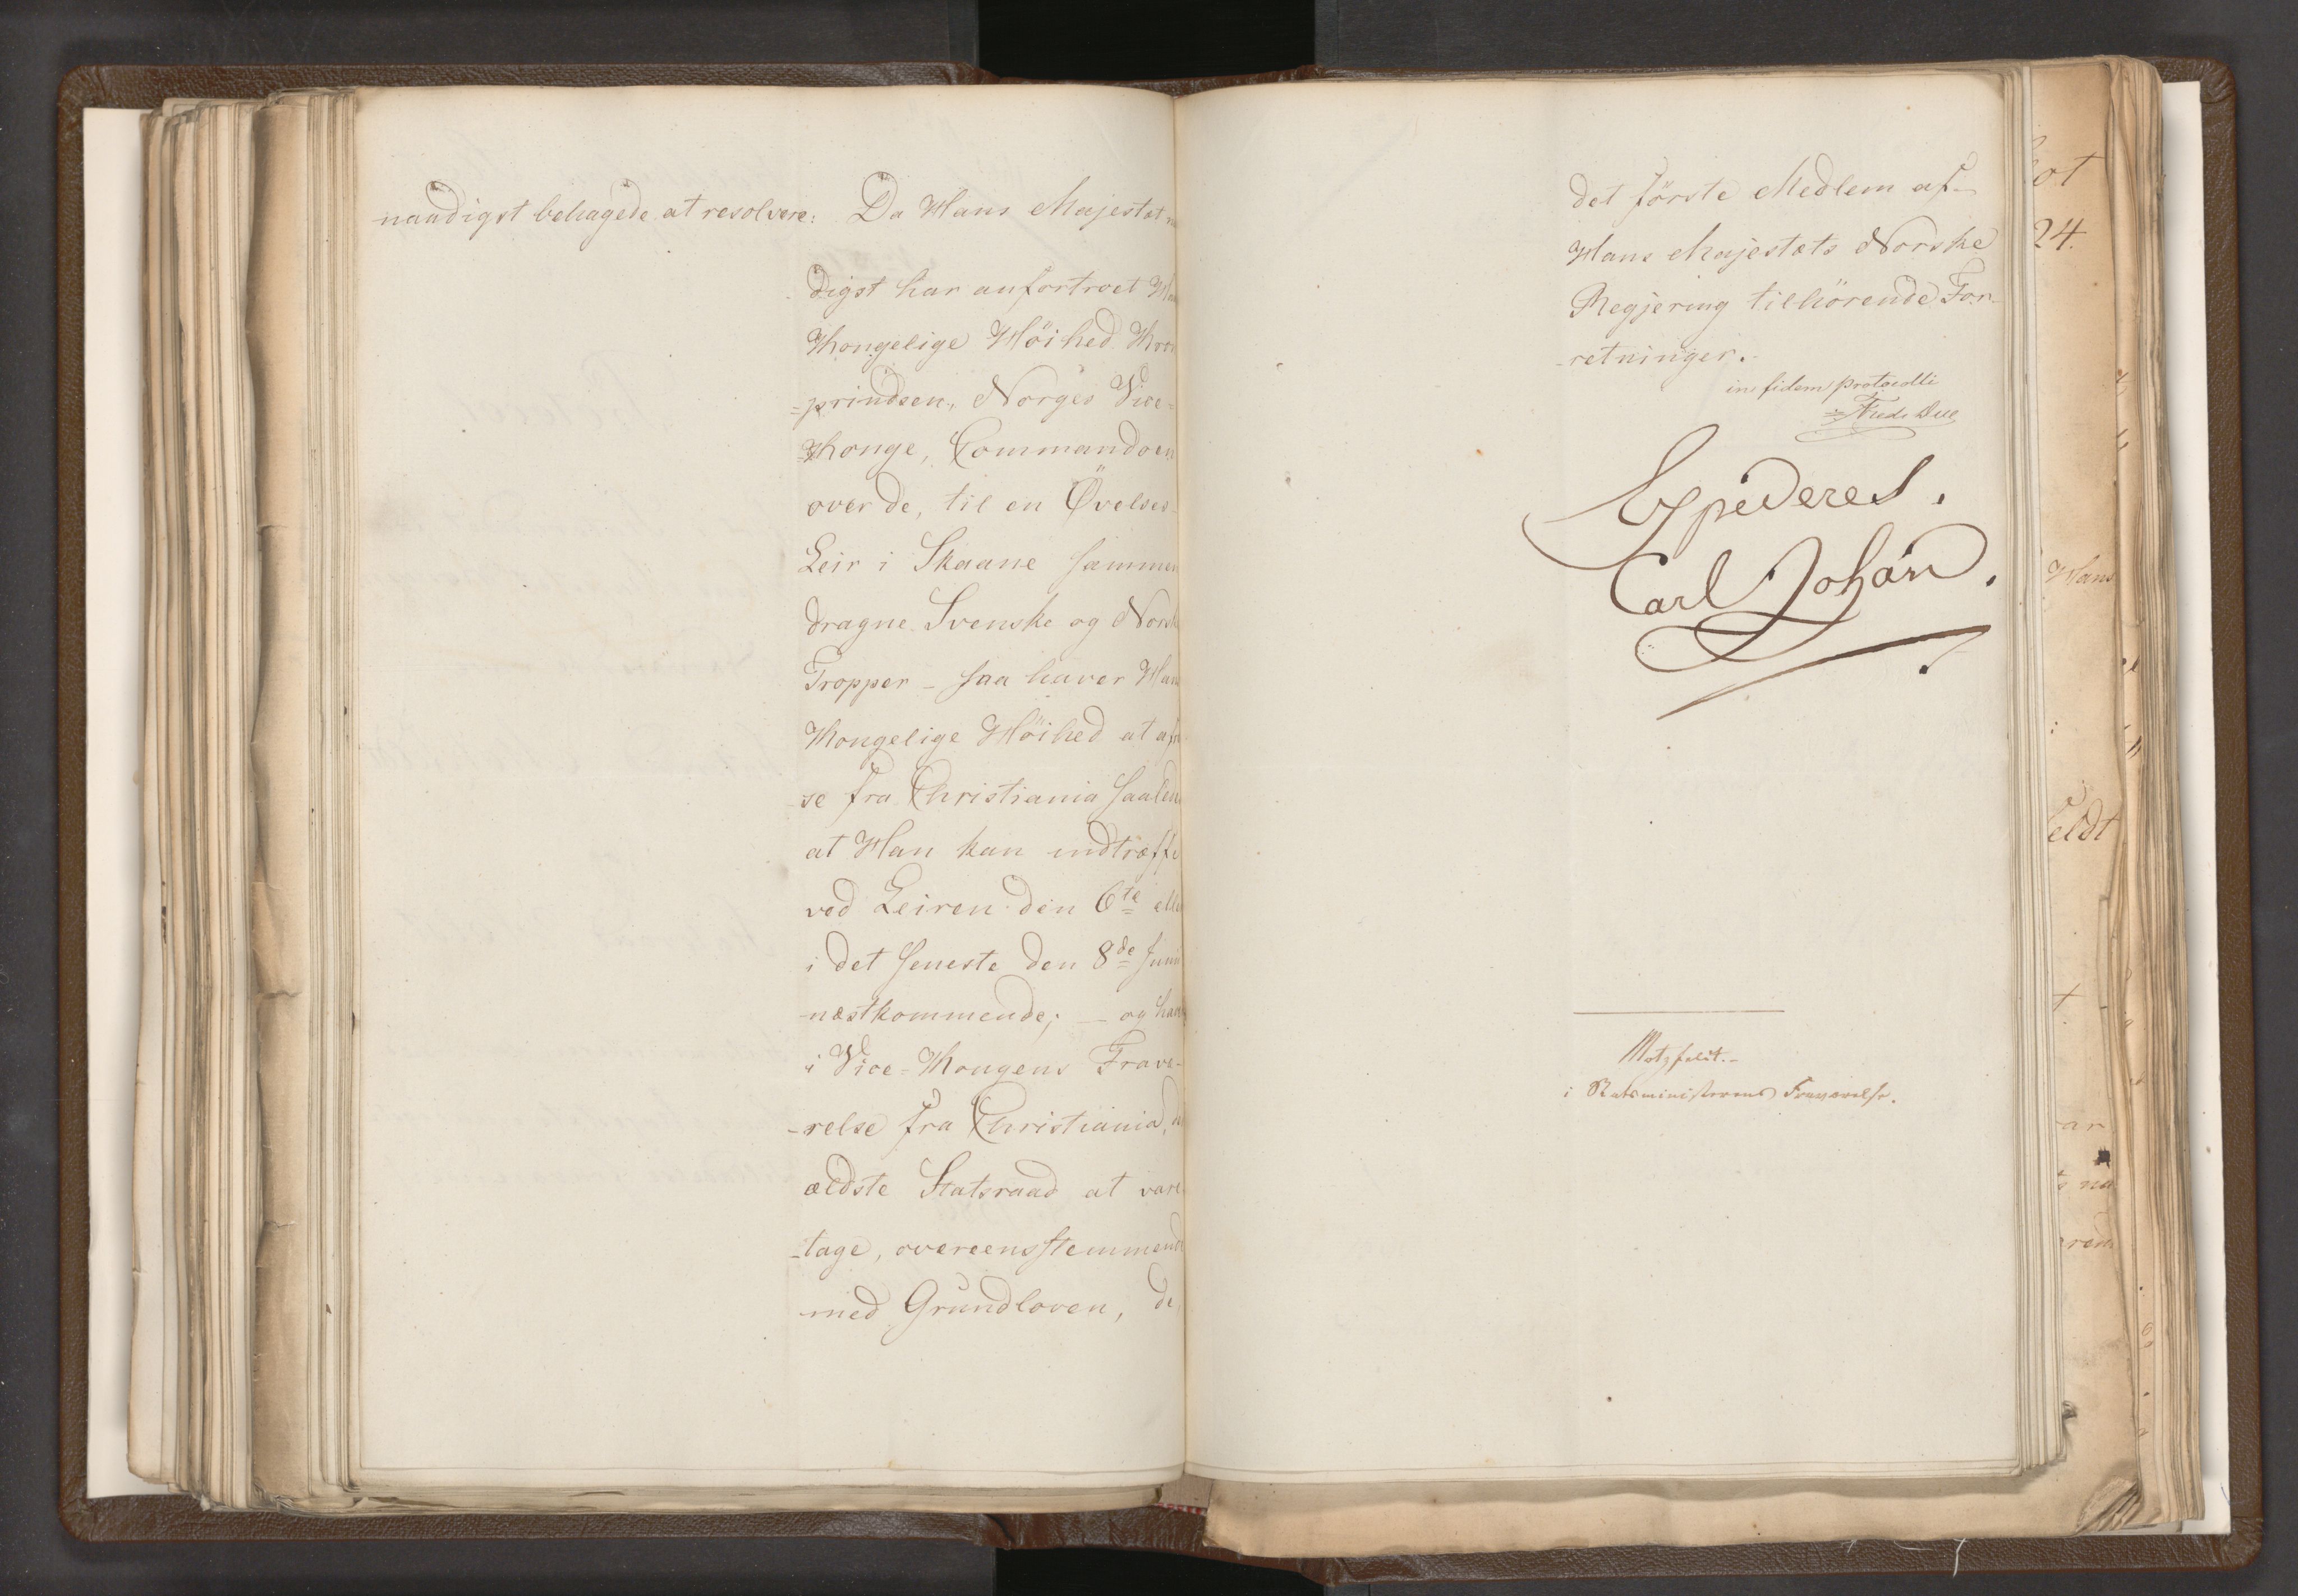 naadigst behagede at resolvere: Da Hans Majestet
digst har anfortroet
Kongelige Höihed
=prindsen, Norges Vice=
=Konge, Commandoen
over de, til en Øvelses-
Leir i Skaane sammen
dragne Svenske og Norsk
Tropper – saa haver Han
Kongelige Höihed at
se fra Christiania saaled
at Han kan indtræffe
ved Leiren den 6te elle
i det seneste den 8de Juni
næstkommende; – og have
i Vice-Kongens Fravæ-
-relse fra Christiania,
ældste Statsraad at vare
-tage, overeensstemmend
med Grundloven, de
det förste Medlem af
Hans Majestæts Norske
Regjering tilhörende For-
-retninger.
in fidem protocolli
Fredr Due
Expederes.
Carl Johan.
Motzfeldt.-
i Statsministerens Fraværelse.
ot
24.
Hans
eldt
ar